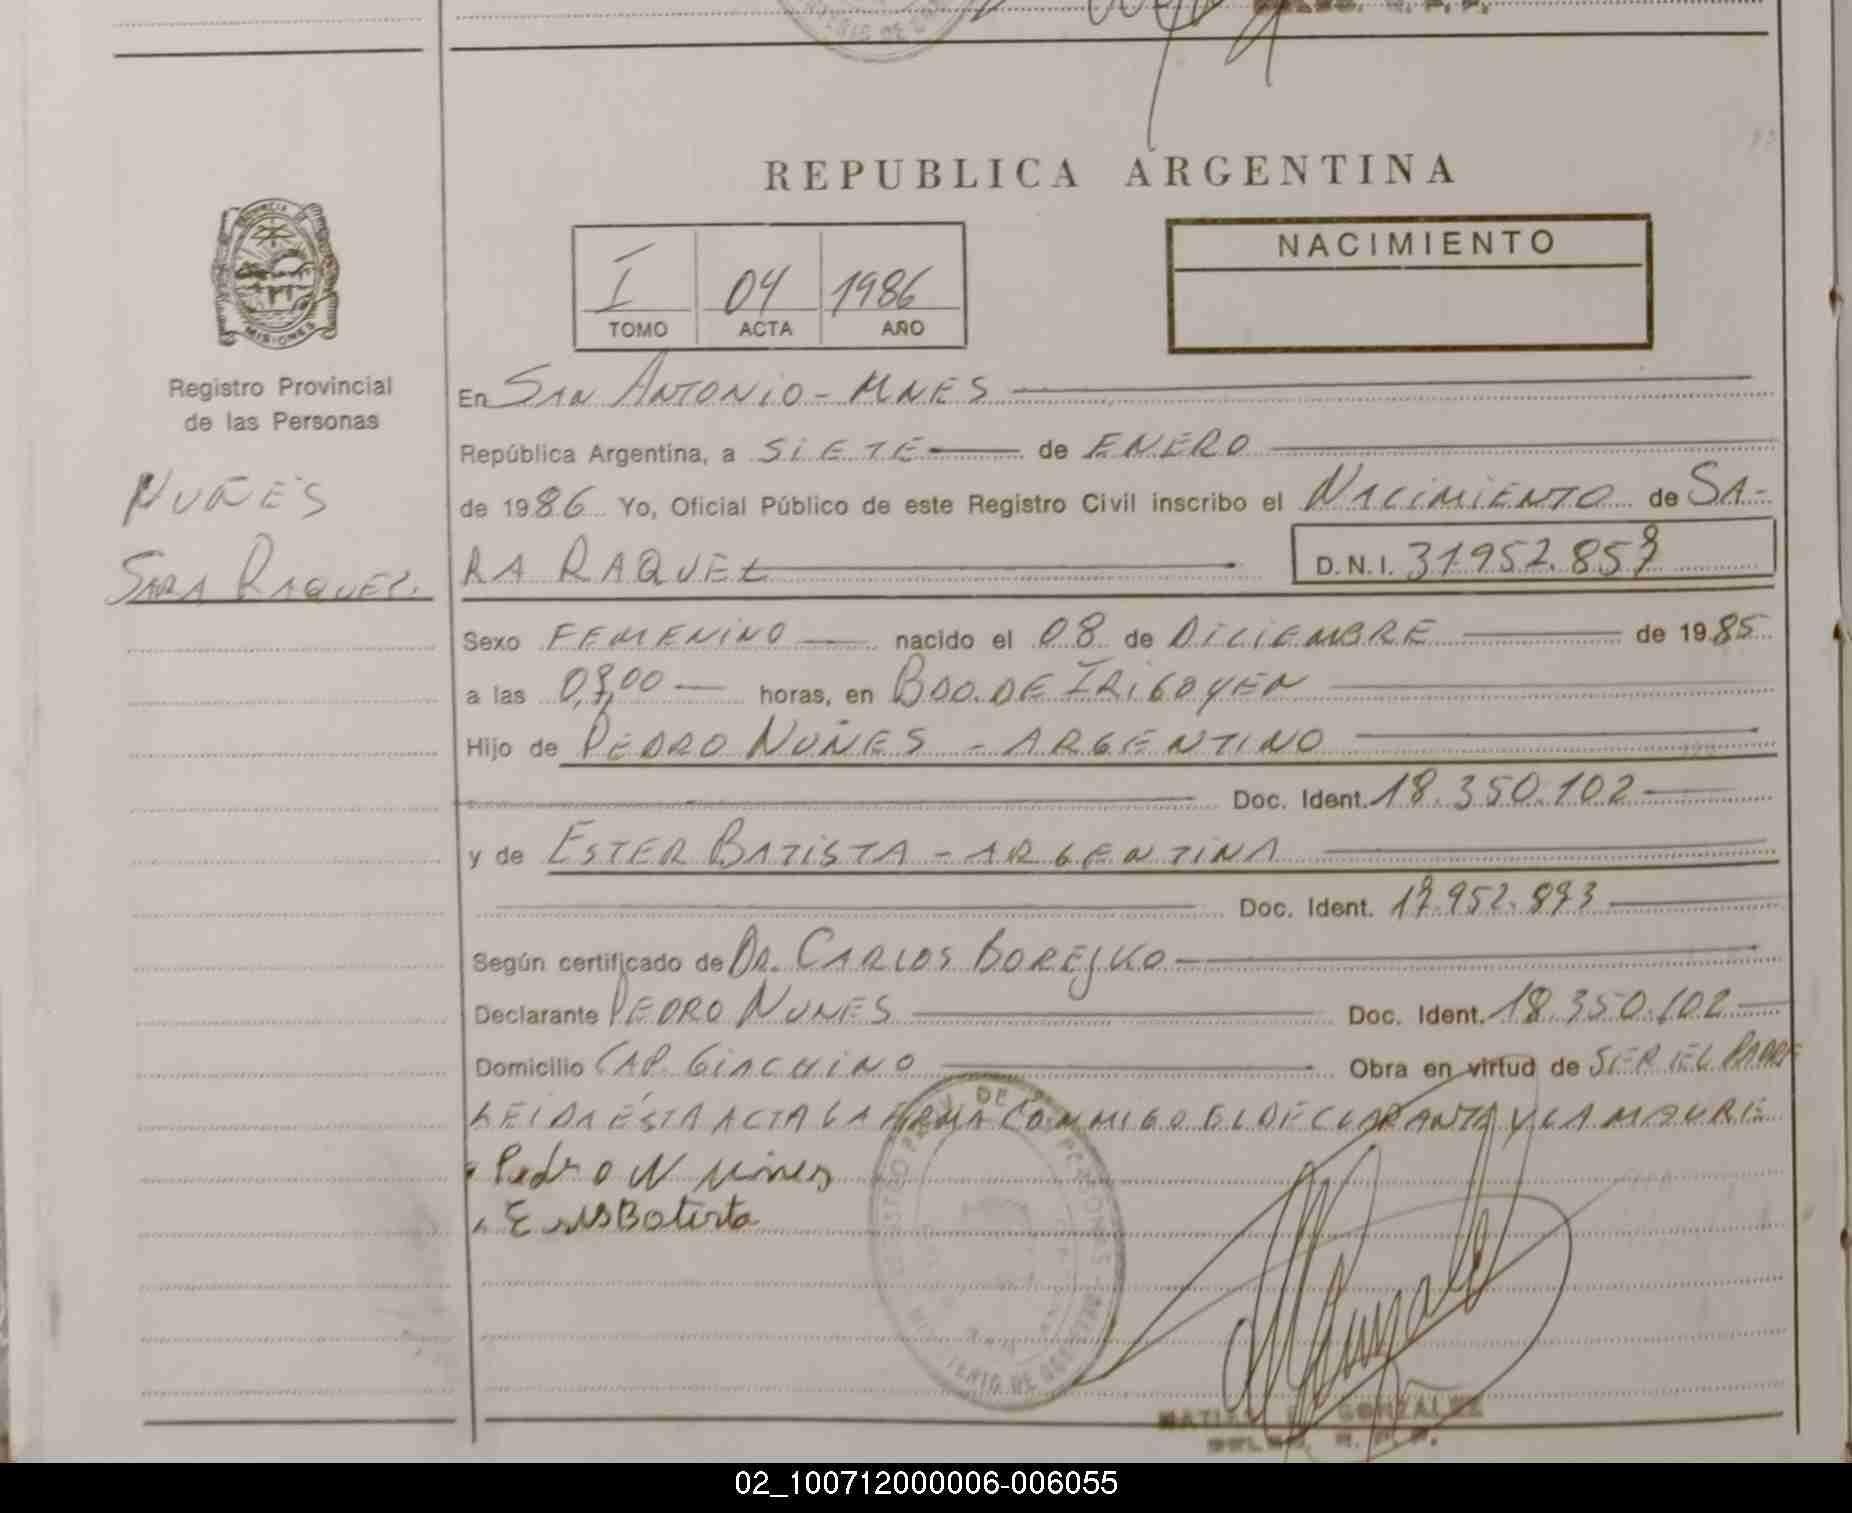 REPUBLICA ARGENTINA
PROVINCIA DE MISIONES
I 04 1986
TOMO ACTA AÑO
NACIMIENTO
Registro Provincial
de las Personas
NUÑES
SARA RAQUEL.
En SAN ANTONIO - MNES
República Argentina, a SIETE de ENERO
de 1986 Yo, Oficial Público de este Registro Civil inscribo el NACIMIENTO de SA-
RA RAQUEL D.N.I. 31.952.857
Sexo FEMENINO nacido el 08 de DICIEMBRE de 1985
a las 07,00 horas, en BDO. DE IRIGOYEN
Hijo de PEDRO NUÑES - ARGENTINO
Doc. Ident. 18.350.102
y de ESTER BATISTA - ARGENTINA
Doc. Ident. 17.952.873
Según certificado de DR. CARLOS BOREJKO
Declarante PEDRO NUNES Doc. Ident. 18.350.102
Domicilio CAP. GIACHINO Obra en virtud de SER EL PADRE
LEIDA ESTA ACTA LA FIRMA CONMIGO EL DECLARANTE Y LA MADRE
Pedro Nunes
Batista
GONZALEZ
02_100712000006-006055